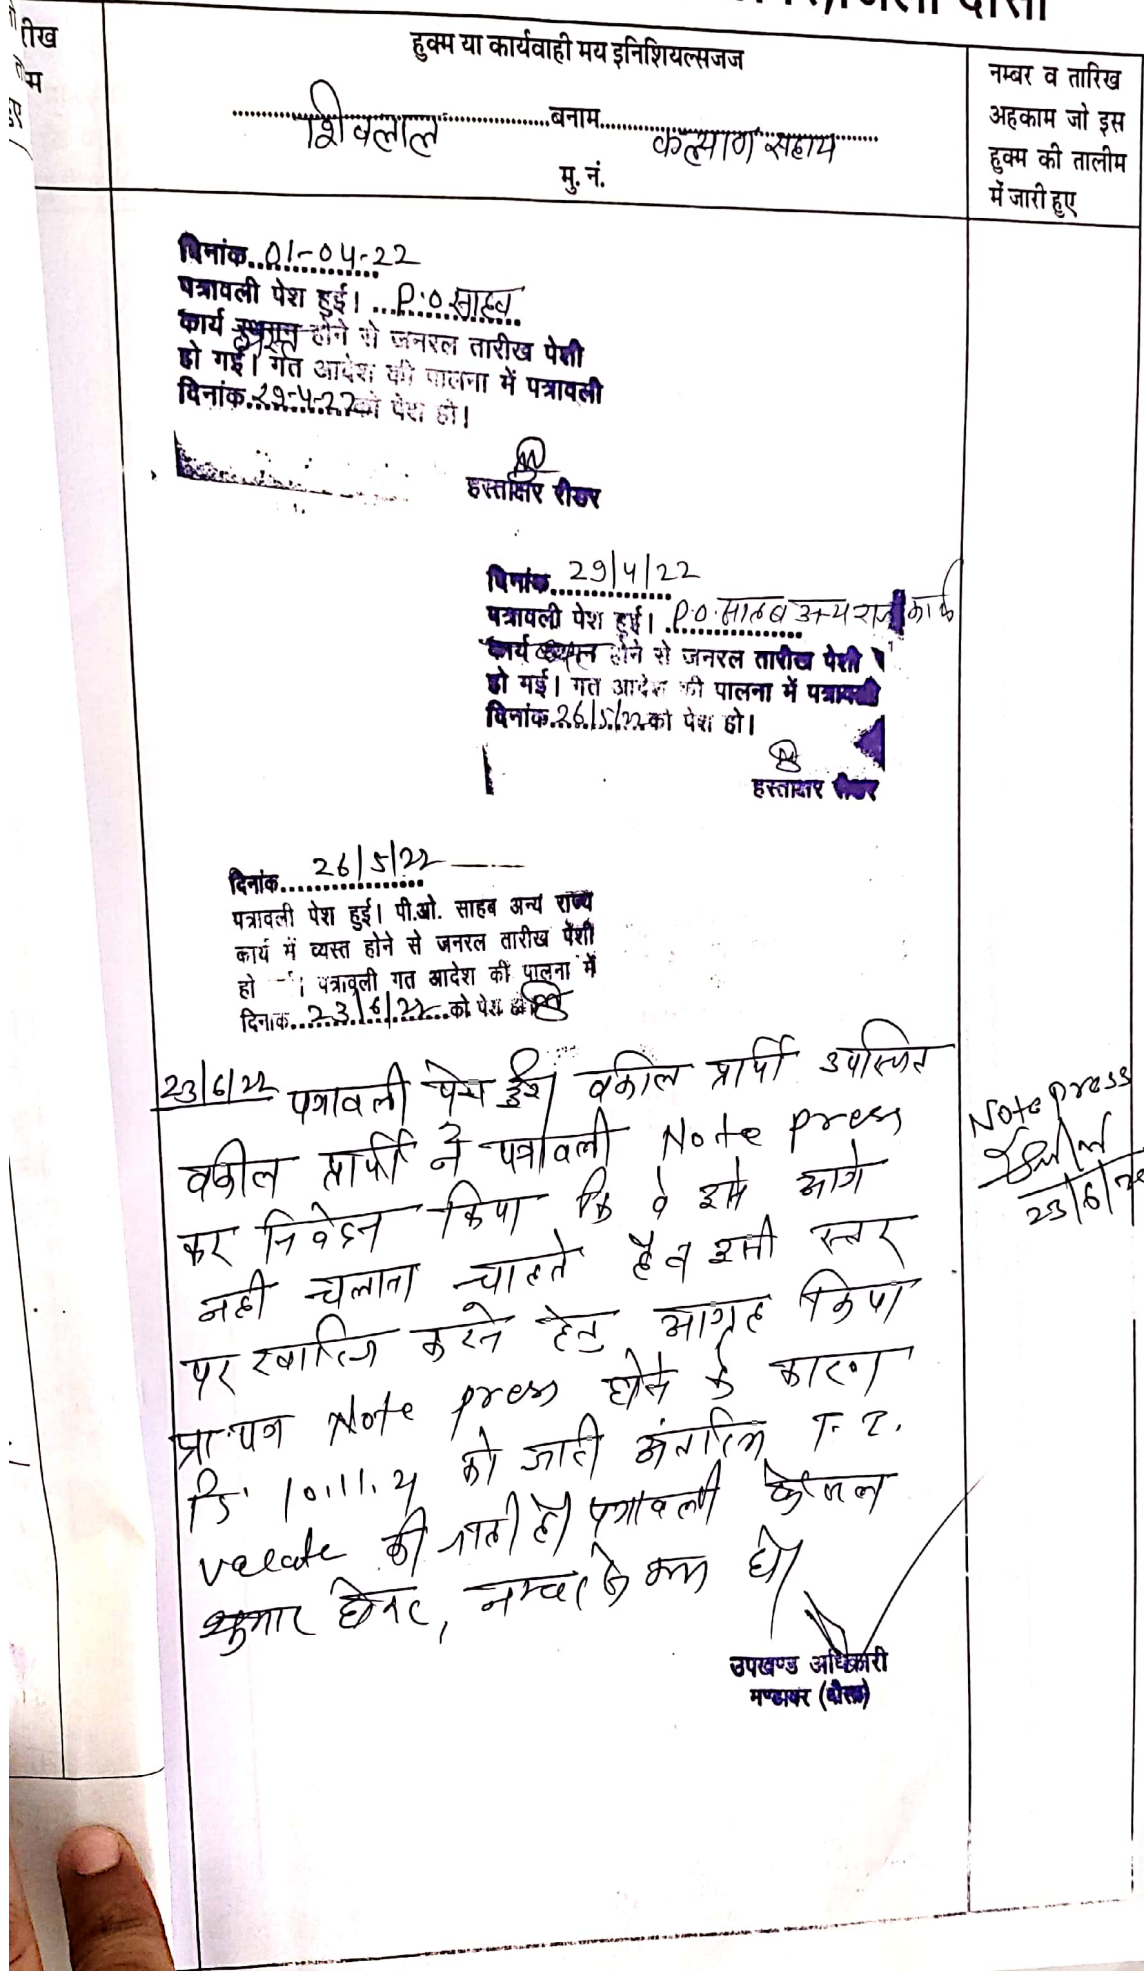 जिला दौसा
रीख
हुक्म या कार्यवाही मय इनिशियल्सजज
नम्बर व तारिख
अहकाम जो इस
हुक्म की तालीम
में जारी हुए
शिवलाल बनाम कल्याण सहाय
मु. नं.
दिनांक 01-04-22
पत्रावली पेश हुई। P.O. साहब
कार्य होने से जनरल तारीख पेशी
हो गई। गत आदेश की पालना में पत्रावली
दिनांक 29-4-22 को पेश हो।
हस्ताक्षर रीडर
दिनांक 29/4/22
पत्रावली पेश हुई। P.O. साहब अन्य राज कार्य
कार्य होने से जनरल तारीख पेशी
हो गई। गत आदेश की पालना में पत्रावली
दिनांक 26/5/22 को पेश हो।
हस्ताक्षर रीडर
दिनांक 26/5/22
पत्रावली पेश हुई। पी.ओ. साहब अन्य राज्य
कार्य में व्यस्त होने से जनरल तारीख पेशी
हो । पत्रावली गत आदेश की पालना में
दिनांक 23/6/22 को पेश हो
23/6/22 पत्रावली पेश हुई। वकील प्रार्थी उपस्थित
वकील प्रार्थी ने पत्रावली Note press
कर निवेदन किया कि वे इसे आगे
नही चलाना चाहते है व इसी स्तर
पर खारिज करने हेतु आग्रह किया
प्रा. पत्र Note press होने के कारण
दि. 10.11. को जारी अंतरिम T.I.
vacate की जाती है। पत्रावली फैसल
शुमार होकर, नम्बर से कम हो।
Note press
23/6/22
उपखण्ड अधिकारी
मण्डावर (दौसा)